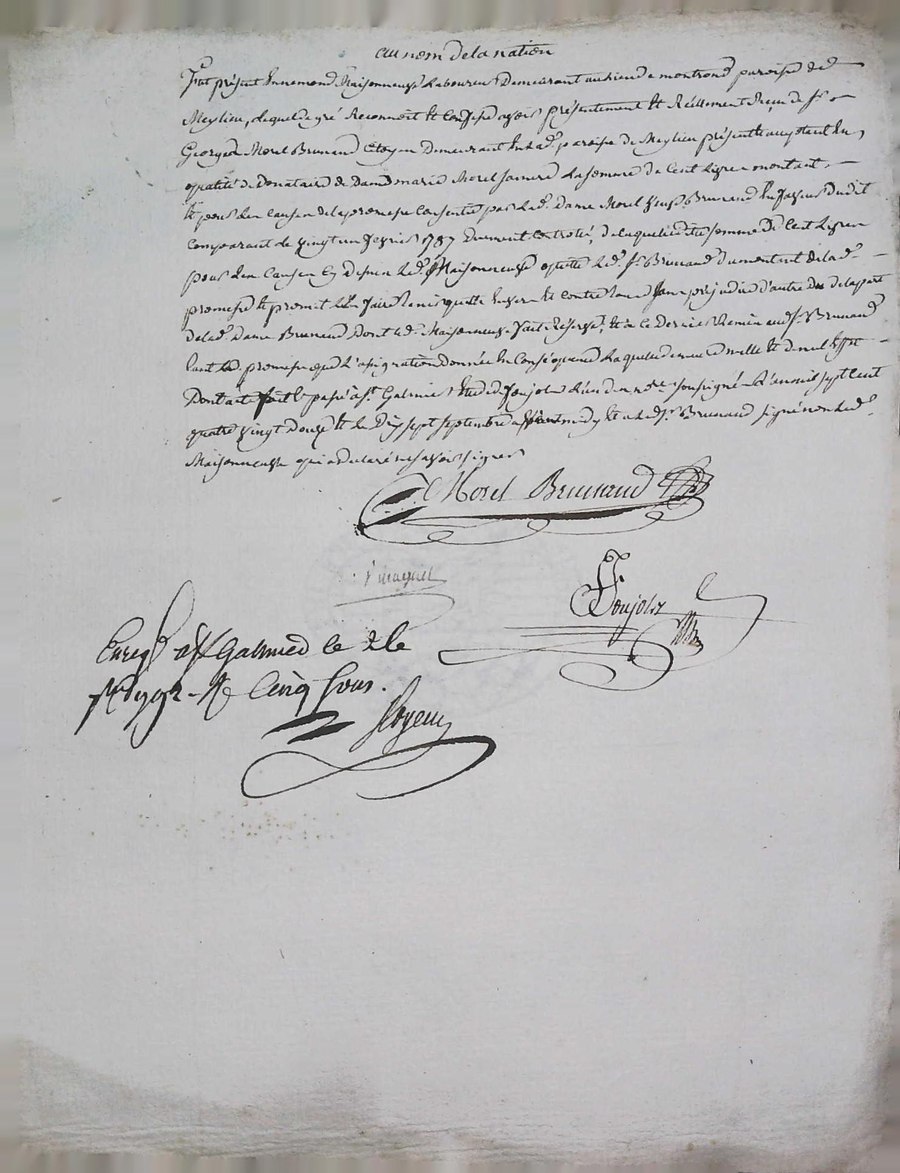 au nom de la nation
fut présent Ennemond Maisonneuve Laboureur Demeurant au lieu de montrond paroisse de
Meylieu, lequel de gré Reconnoit et Confesse avoir présentement et Réellement Reçu de Sr
George Morel Brunand Citoyen Demeurant en lad. paroisse de Meylieu présent et acceptant en
qualité de Donataire de Dame marie Morel sa mere La somme de Cent Livres montant
et pour les Causes de la promesse Consentie par lad. Dame Morel Brunand en faveur dudit
Comparant le vingt un fevrier 1787 Duement Controllé, de laquelle ditte somme De Cent Livres
pour les Causes cy dessus led. Maisonneuve quitte led. Sr Brunand du montant de la d.
promesse et promet l'en faire tenir quitte envers et Contre tous sans préjudice d'autre du de la part
de lad. Dame Brunand Dont led. Maisonneuve fait Réserve. et a ce Dernier Remis aud. Sr Brunand
tant lad. promesse que l'assignation donnée en Conséquence Laquelle demeure nulle et de nul Effet
Dont acte fait et passé à St Galmier Etude de Joujoly L'un des nores soussigné L'an mil sept Cent
quatre vingt Douze et le Dix sept septembre après midy et a led. Sr Brunand signé non led.
Maisonneuve qui a declaré ne savoir signer
Morel Brunand
Joujoly
Enreg à St Galmier le
1792 Cinq sous.